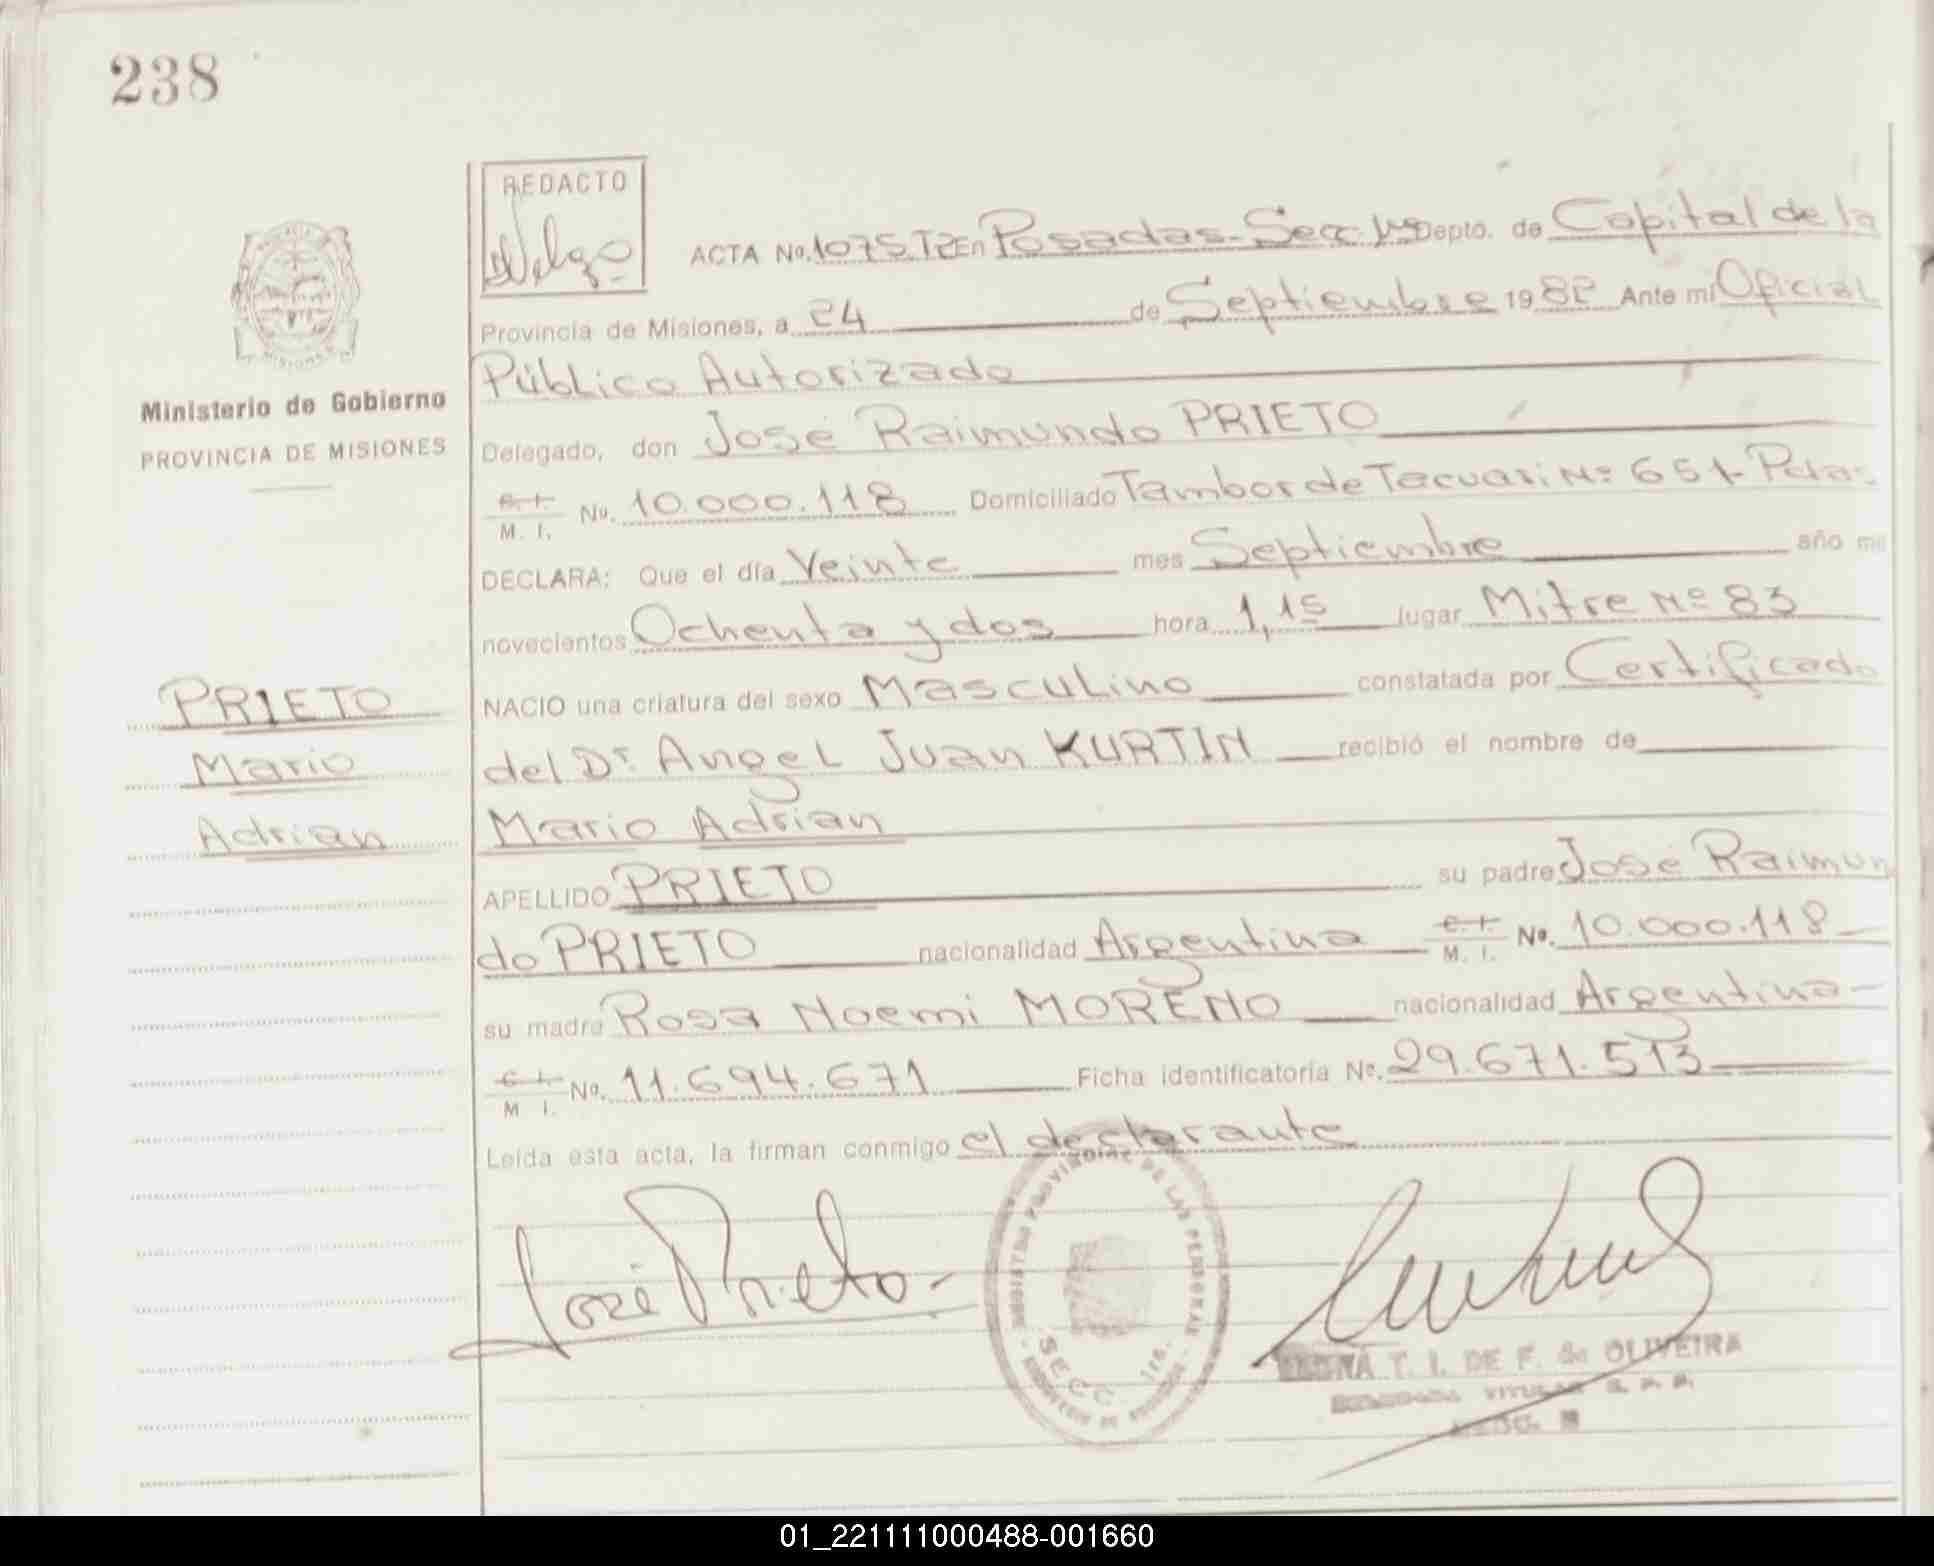 238
REDACTO
ACTA No. 1075. T2 En Posadas - Secc. Depto. de Capital de la
Provincia de Misiones, a 24 de Septiembre 1982 Ante mi Oficial
Público Autorizado
Ministerio de Gobierno
PROVINCIA DE MISIONES
Delegado, don José Raimundo PRIETO
C. I.
M. I. No. 10.000.118 Domiciliado Tambor de Tacuari Nº 651-
DECLARA: Que el día Veinte mes Septiembre año mil
novecientos Ochenta y dos hora 1,15 lugar Mitre Nº 83
NACIO una criatura del sexo Masculino constatada por Certificado
del Dr. Angel Juan KURTIN recibió el nombre de
Mario Adrian
PRIETO
Mario
Adrian
APELLIDO PRIETO su padre José Raimun
do PRIETO nacionalidad Argentina C. I.
M. I. No. 10.000.118
su madre Rosa Noemi MORENO nacionalidad Argentina
C. I.
M. I. No. 11.694.671 Ficha identificatoria No. 29.671.513
Leida esta acta, la firman conmigo el declarante
José Prieto
REGISTRO PROVINCIAL DE LAS PERSONAS
SECC.
T. I. DE F. de OLIVEIRA
TITULAR
01_221111000488-001660